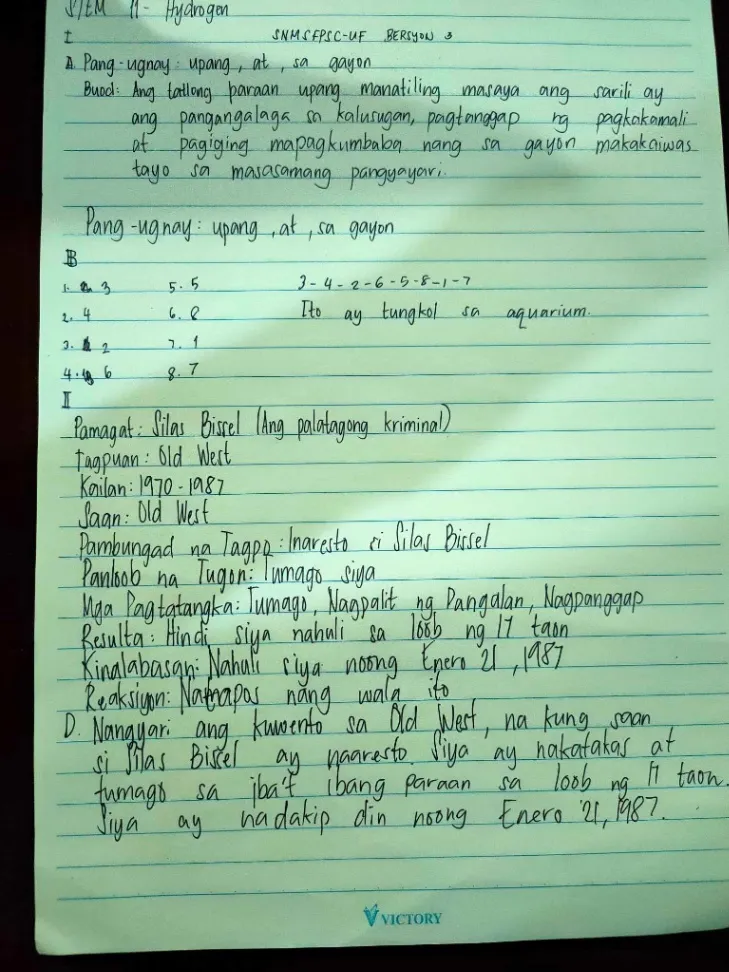 STEM 11- Hydrogen
I SNMSFPSC-UF BERSYON 3
A. Pang-ugnay: upang, at, sa gayon
Buod: Ang tatlong paraan upang manatiling masaya ang sarili ay
ang pangangalaga sa kalusugan, pagtanggap ng pagkakamali
at pagiging mapagkumbaba nang sa gayon makakaiwas
tayo sa masasamang pangyayari.
Pang-ugnay: upang, at, sa gayon
B
1. 3 5. 5 3-4-2-6-5-8-1-7
2. 4 6. 8 Ito ay tungkol sa aquarium.
3. 2 7. 1
4. 6 8. 7
II
Pamagat: Silas Bissel (Ang palatagong kriminal)
Tagpuan: Old West
Kailan: 1970-1987
Saan: Old West
Pambungad na Tagpo: Inaresto si Silas Bissel
Panloob na Tugon: Tumago siya
Mga Pagtatangka: Tumago, Nagpalit ng Pangalan, Nagpanggap
Resulta: Hindi siya nahuli sa loob ng 17 taon
Kinalabasan: Nahuli siya noong Enero 21, 1987
Reaksiyon: Natapos nang wala ito
D. Nangyari ang kuwento sa Old West, na kung saan
si Silas Bissel ay naaresto. Siya ay nakatakas at
tumago sa iba't ibang paraan sa loob ng 17 taon.
Siya ay nadakip din noong Enero 21, 1987.
VICTORY